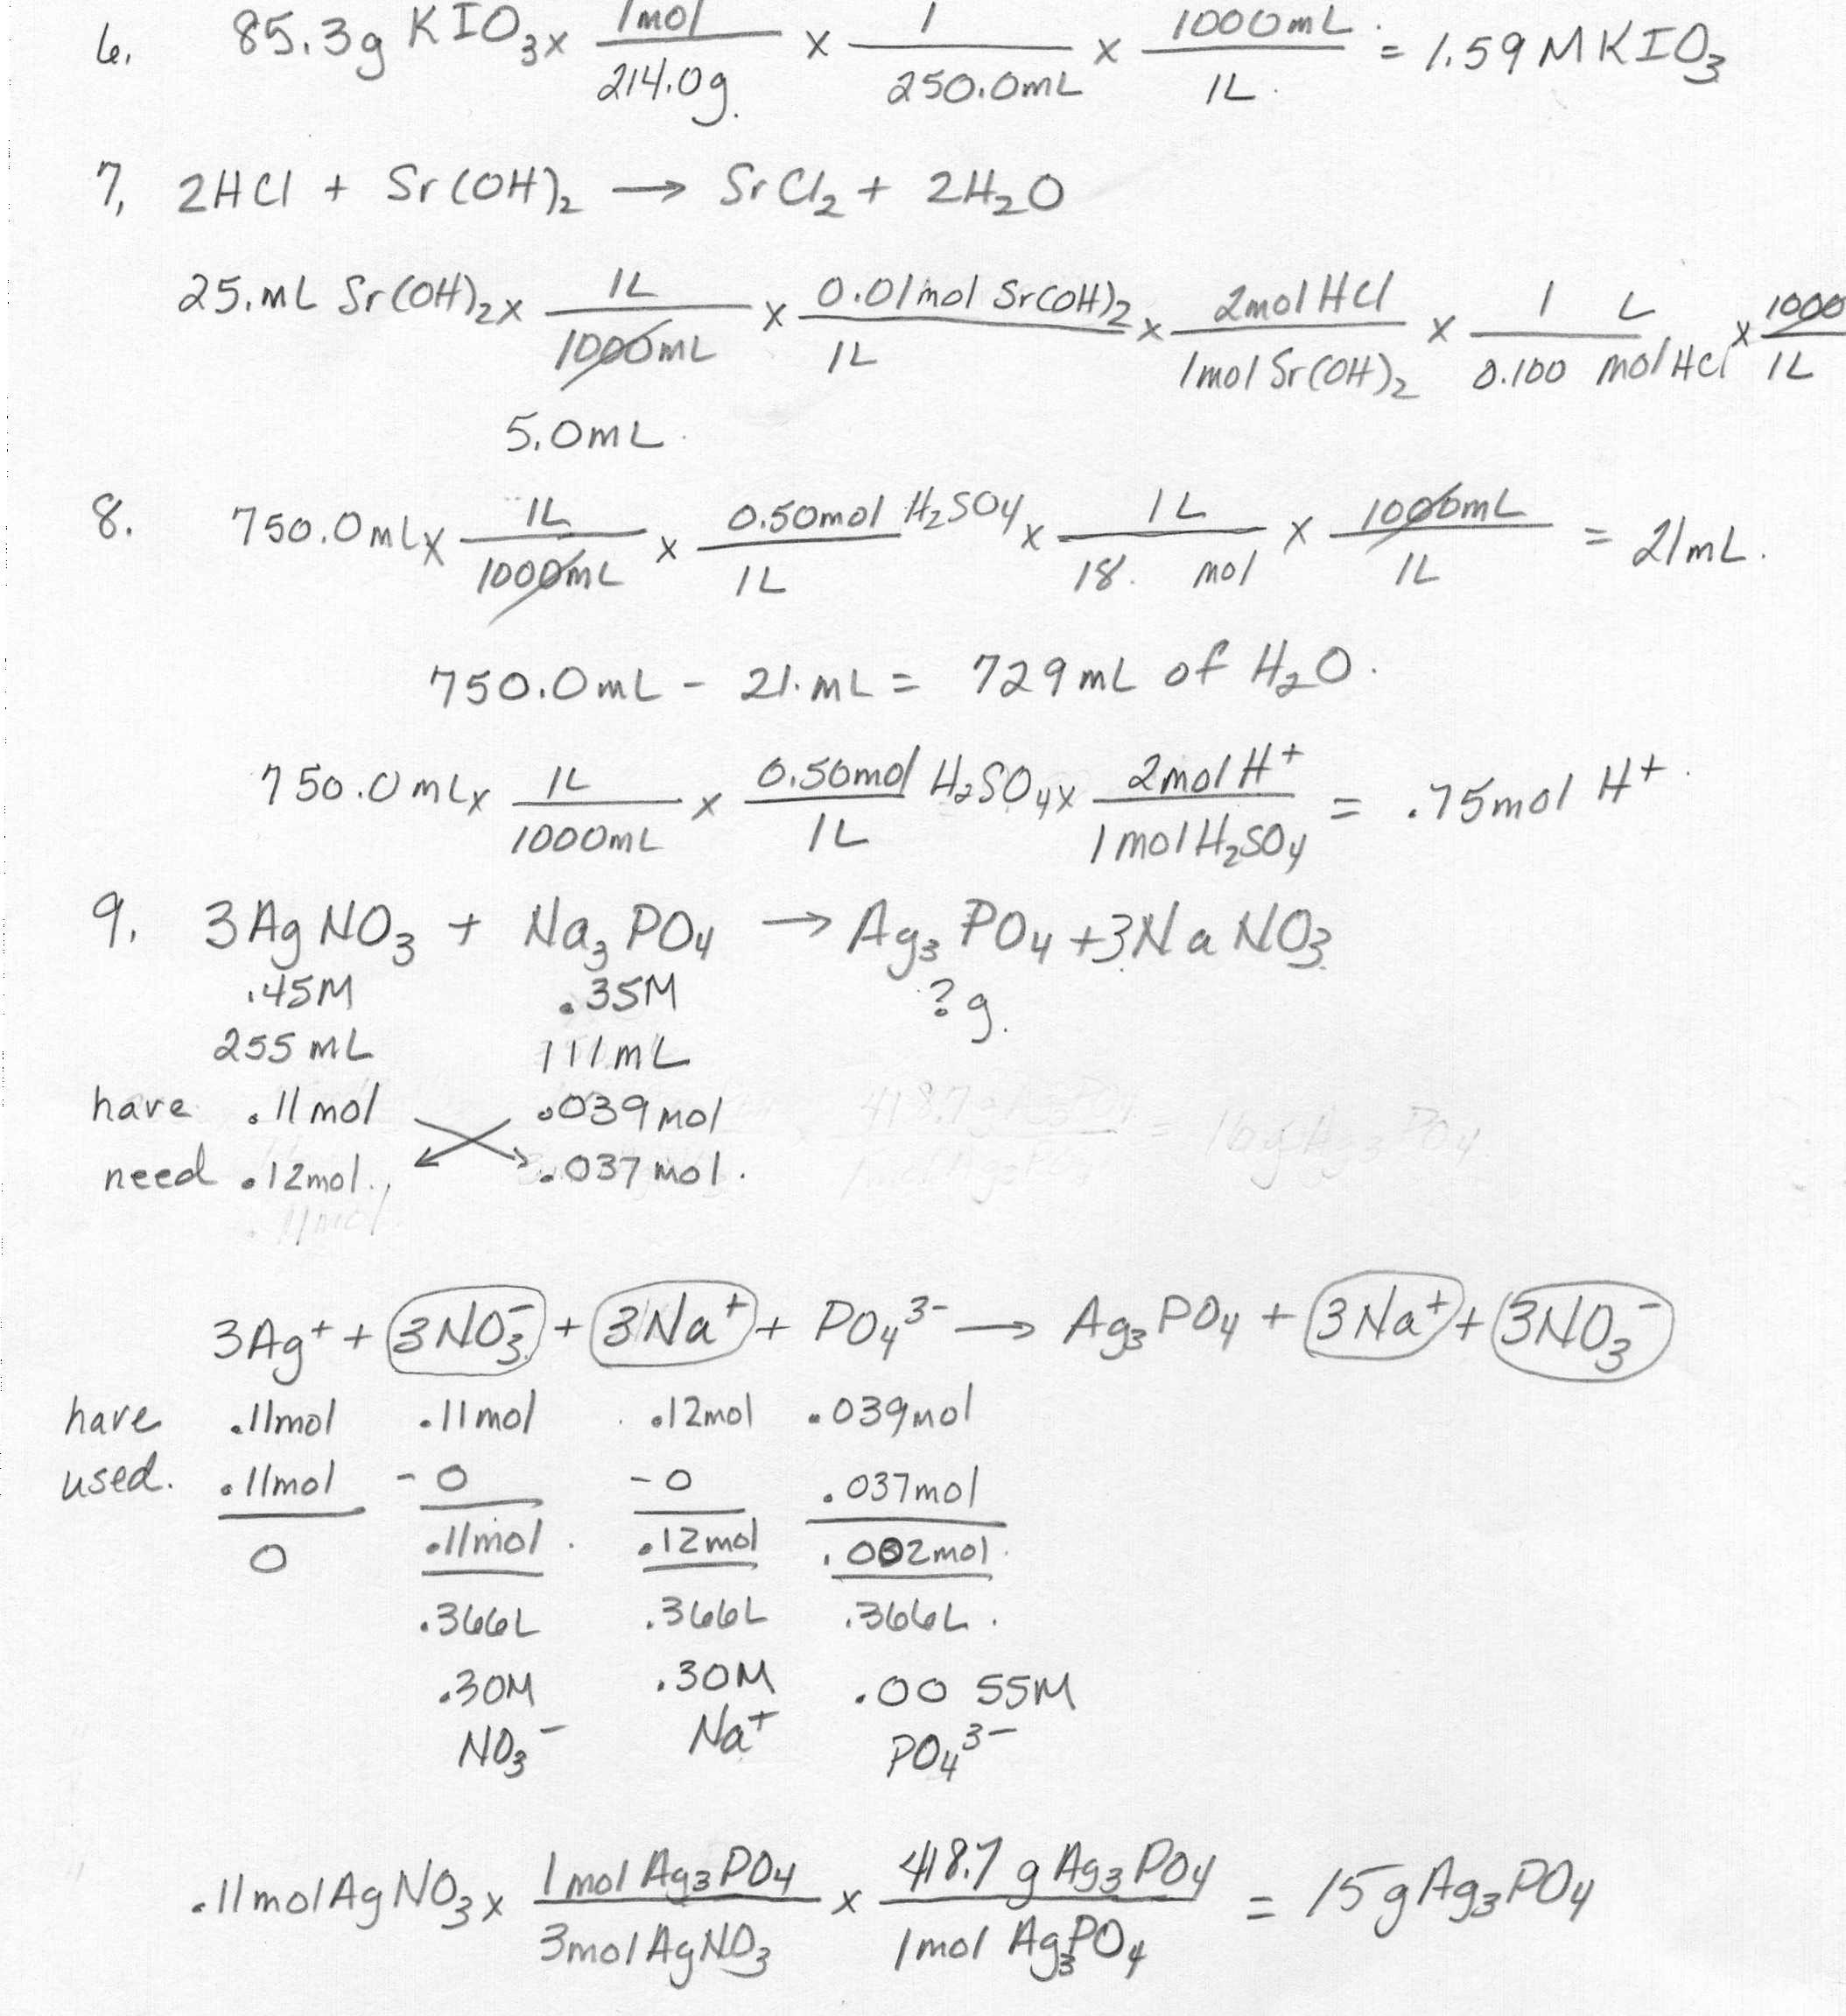 6. 85.3g KIO₃ x 1mol/214.0g. x 1/250.0mL x 1000mL/1L. = 1.59 M KIO₃
7, 2HCl + Sr(OH)₂ → SrCl₂ + 2H₂O
25.mL Sr(OH)₂ x 1L/1000mL x 0.01mol Sr(OH)₂/1L x 2mol HCl/1mol Sr(OH)₂ x 1 L/0.100 mol HCl x 1000/1L
5.0mL.
8. 750.0mL x 1L/1000mL x 0.50mol H₂SO₄/1L x 1L/18. mol x 1000mL/1L = 21mL.
750.0mL - 21.mL = 729mL of H₂O.
750.0mL x 1L/1000mL x 0.50mol H₂SO₄/1L x 2mol H⁺/1mol H₂SO₄ = .75mol H⁺.
9. 3AgNO₃ + Na₃PO₄ → Ag₃PO₄ + 3NaNO₃
.45M .35M ?g.
255mL 111mL
have .11mol .039mol
need .12mol. .037mol.
3Ag⁺ + 3NO₃⁻ + 3Na⁺ + PO₄³⁻ → Ag₃PO₄ + 3Na⁺ + 3NO₃⁻
have .11mol .11mol .12mol .039mol
used. .11mol -0 -0 .037mol
0 .11mol. .12mol .002mol.
.366L .366L .366L.
.30M .30M .0055M
NO₃⁻ Na⁺ PO₄³⁻
.11mol AgNO₃ x 1mol Ag₃PO₄/3mol AgNO₃ x 418.7g Ag₃PO₄/1mol Ag₃PO₄ = 15g Ag₃PO₄